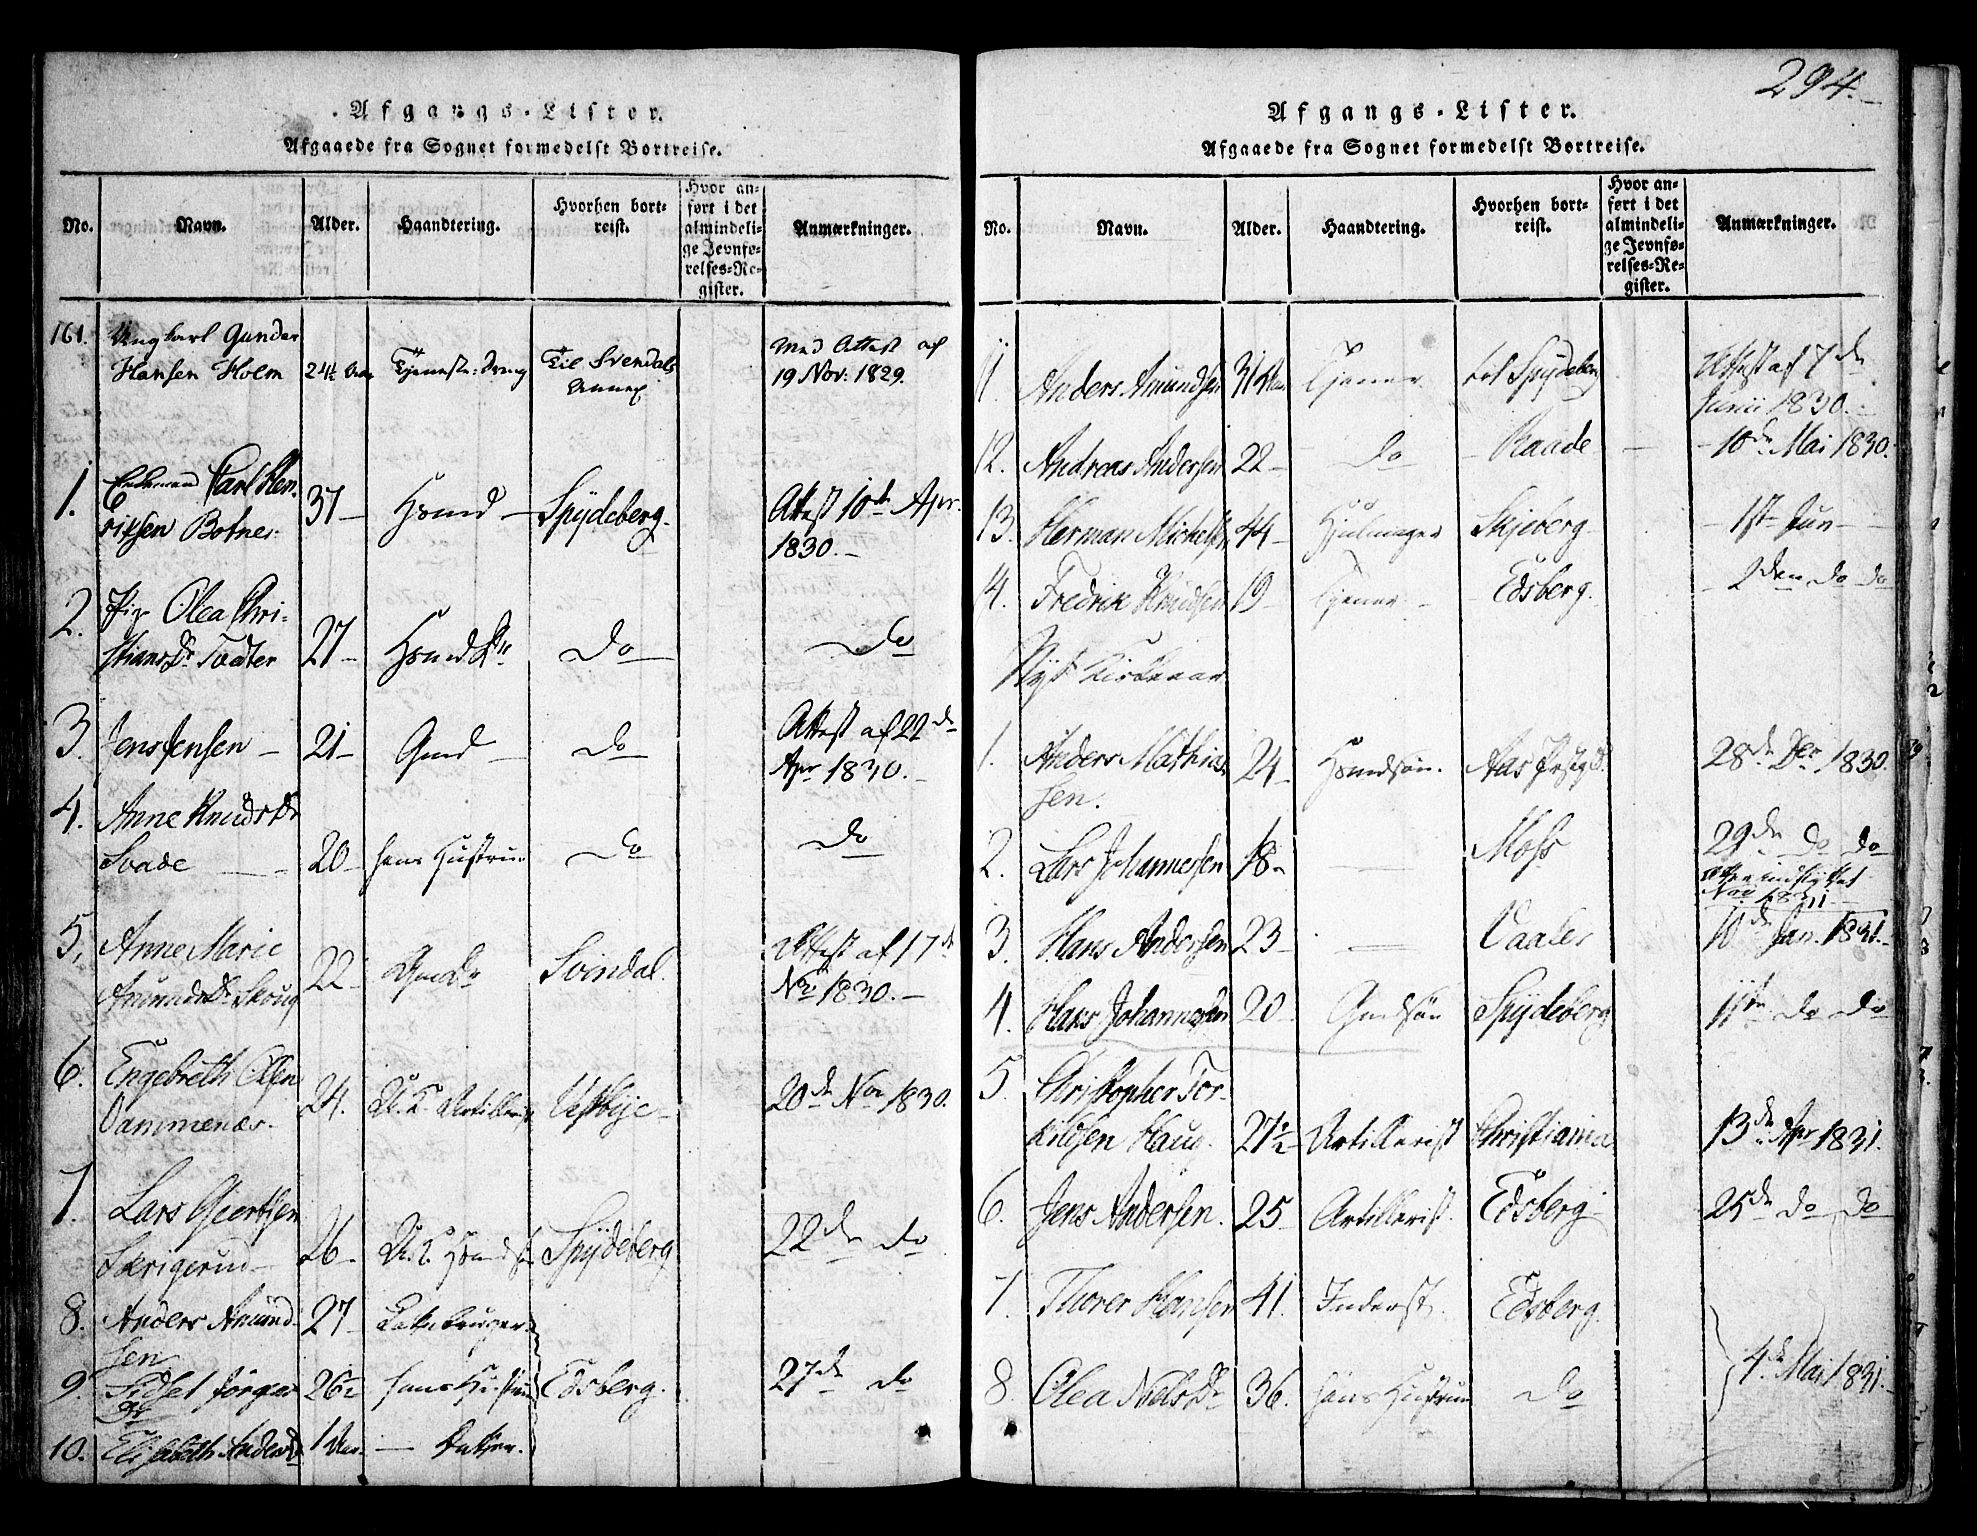 Afgangs-Lister.
Afgaaede fra Sognet formedelst Bortreise.
No. Navn. Alder. Haandtering. Hvorhen bortreist. Hvor anført i det almindelige Jevnførelses-Register. Anmærkninger.
161. Ungkarl Gunder Med Attest af
Hansen Holm 24½ Aar Tjeneste: Dreng Til Svendals 19 Nov: 1829.
Annex
1. Enkemand Carl Hen-
riksen Botner. 37 Hsmd Spydeberg. Attest 10de Apr.
1830.
2. Pige Olea Chri-
stiansDr Tvedter 27 HsmdDr Do Do
3. Jens Jensen 21 Gmd Do Attest af 22de
Apr 1830.
4. Anne KnudsDr
Svade 20 hans Hustrue Do Do
5. Anne Marie Attest af 17de
AmundsDr Skoug 22 GmdDr Svindal. Nov 1830.
6. Engebreth Olsen
Dammenæs. 24. U. K. Artillerist Vestbye 20de Nov 1830.
7. Lars Geertsen
Skrigerud 26 U. K. Spydeberg 22de Do
8. Anders Amund- 27
sen
9. Sidsel Jørgens 26½ hans Hustrue Edsberg. 27de Do
Dr
10. Elisabeth AndersDr 1 Aar Datter.
294.
Afgangs-Lister.
Afgaaede fra Sognet formedelst Bortreise.
No. Navn. Alder. Haandtering. Hvorhen bortreist. Hvor anført i det almindelige Jevnførelses-Register. Anmærkninger.
11. Anders Amundsen 31 Aar Tjener til Spydeberg Attest af 7de
Junii 1830.
12. Andreas Andersen 22 Do Raade 10de Mai 1830.
13. Herman Michelsen 44 Hjulmager Skjeberg 1st Jun
14. Fredrik Knudsen 19 Tjener Edsberg. 2den Do Do
Nyt Kirkeaar
1. Anders Mathia- 24 Hsmdsøn. Aas Prstgd. 28de Dec 1830.
sen.
2. Lars Johannessen 18 Moss 29de Do Do
3. Hans Andersen 23 Vaaler 10de Jan. 1831.
4. Hans Johannessen 20 Gmdsøn Spydeberg 11te Do Do
5. Christopher Tor-
kildsen Haug. 27½ Artillerist Christiania 13de Apr 1831.
6. Jens Andersen. 25 Artillerist. Edsberg 25de Do Do
7. Thorer Hansen 41. Inderst. Edsberg.
4de Mai 1831.
8. Olea NielsDr 36. hans Hustrue Do